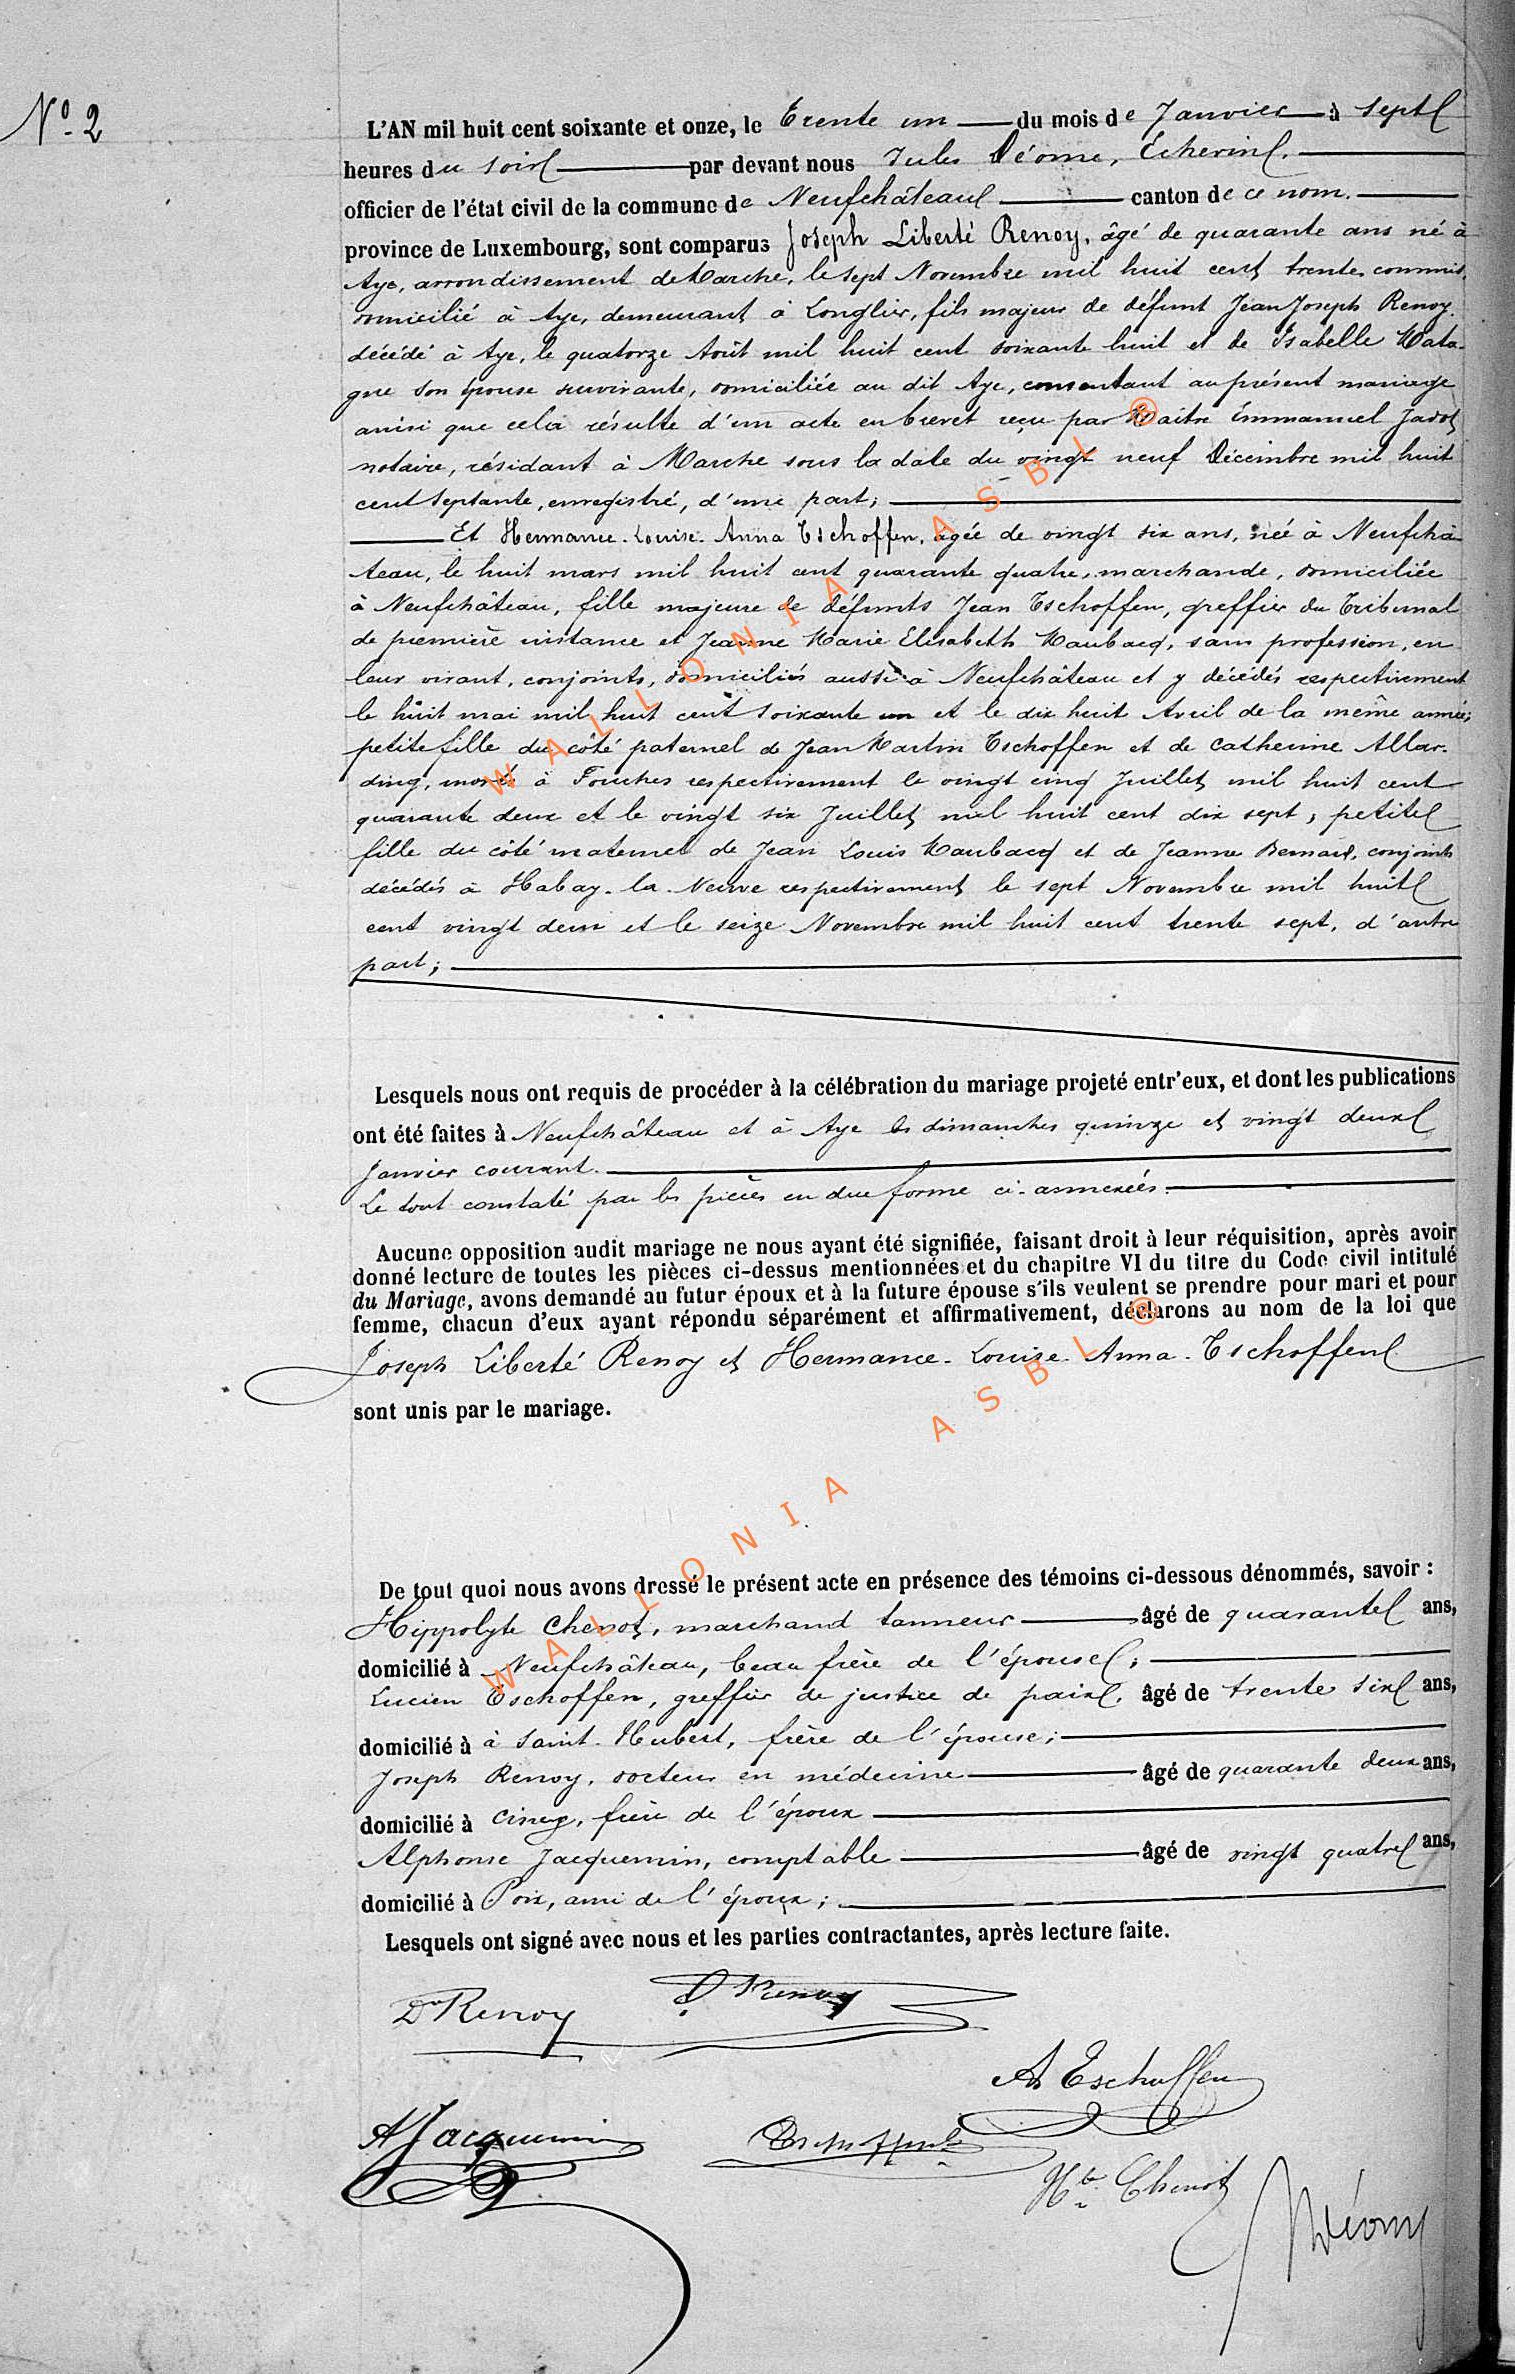 N° 2
L'AN mil huit cent soixante et onze, le Trente un du mois de Janvier à sept
heures du soir par devant nous Jules Déome, Échevin.
officier de l'état civil de la commune de Neufchâteau canton de ce nom.
province de Luxembourg, sont comparus Joseph Liberté Renoy, âgé de quarante ans né à
Aye, arrondissement de Marche, le sept Novembre mil huit cent trente, commis,
domicilié à Aye, demeurant à Longlier, fils majeur de défunt Jean Joseph Renoy
décédé à Aye, le quatorze Août mil huit cent soixante huit et de Isabelle Mata-
gne son épouse survivante, domiciliée au dit Aye, consentant au présent mariage
ainsi que cela résulte d'un acte en brevet reçu par Maître Emmanuel Jadot
notaire, résidant à Marche sous la date du vingt neuf Décembre mil huit
cent septante, enregistré, d'une part;
Et Hermance-Louise-Anna Tschoffen, âgée de vingt six ans, née à Neufchâ-
teau, le huit mars mil huit cent quarante quatre, marchande, domiciliée
à Neufchâteau, fille majeure de défunts Jean Tschoffen, greffier du Tribunal
de première instance et Jeanne Marie Elisabeth Maubacq, sans profession, en
leur vivant, conjoints, domiciliés aussi à Neufchâteau et y décédés respectivement
le huit mai mil huit cent soixante un et le dix huit Avril de la même année;
petite fille du côté paternel de Jean Martin Tschoffen et de Catherine Allar-
ding, morts à Fouches respectivement le vingt cinq Juillet mil huit cent
quarante deux et le vingt six Juillet mil huit cent dix sept, petite
fille du côté maternel de Jean Louis Maubacq et de Jeanne Bernard, conjoints
décédés à Habay-la-Neuve respectivement le sept Novembre mil huit
cent vingt deux et le seize Novembre mil huit cent trente sept, d'autre
part;
Lesquels nous ont requis de procéder à la célébration du mariage projeté entr'eux, et dont les publications
ont été faites à Neufchâteau et à Aye les dimanches quinze et vingt deux
Janvier courant.
Le tout constaté par les pièces en due forme ci-annexées.
Aucune opposition audit mariage ne nous ayant été signifiée, faisant droit à leur réquisition, après avoir
donné lecture de toutes les pièces ci-dessus mentionnées et du chapitre VI du titre du Code civil intitulé
du Mariage, avons demandé au futur époux et à la future épouse s'ils veulent se prendre pour mari et pour
femme, chacun d'eux ayant répondu séparément et affirmativement, déclarons au nom de la loi que
Joseph Liberté Renoy et Hermance-Louise-Anna-Tschoffen
sont unis par le mariage.
De tout quoi nous avons dressé le présent acte en présence des témoins ci-dessous dénommés, savoir :
Hippolyte Chenot, marchand tanneur âgé de quarante ans,
domicilié à Neufchâteau, beau frère de l'épouse;
Lucien Tschoffen, greffier de justice de paix, âgé de trente six ans,
domicilié à à Saint-Hubert, frère de l'épouse;
Joseph Renoy, docteur en médecine âgé de quarante deux ans,
domicilié à Ciney, frère de l'époux
Alphonse Jacquemin, comptable âgé de vingt quatre ans,
domicilié à Poix, ami de l'époux;
Lesquels ont signé avec nous et les parties contractantes, après lecture faite.
Dr Renoy
Renoy
A Tschoffen
A Jacquemin
Hte Chenot
JDéome
WALLONIA ASBL ®
WALLONIA ASBL ®